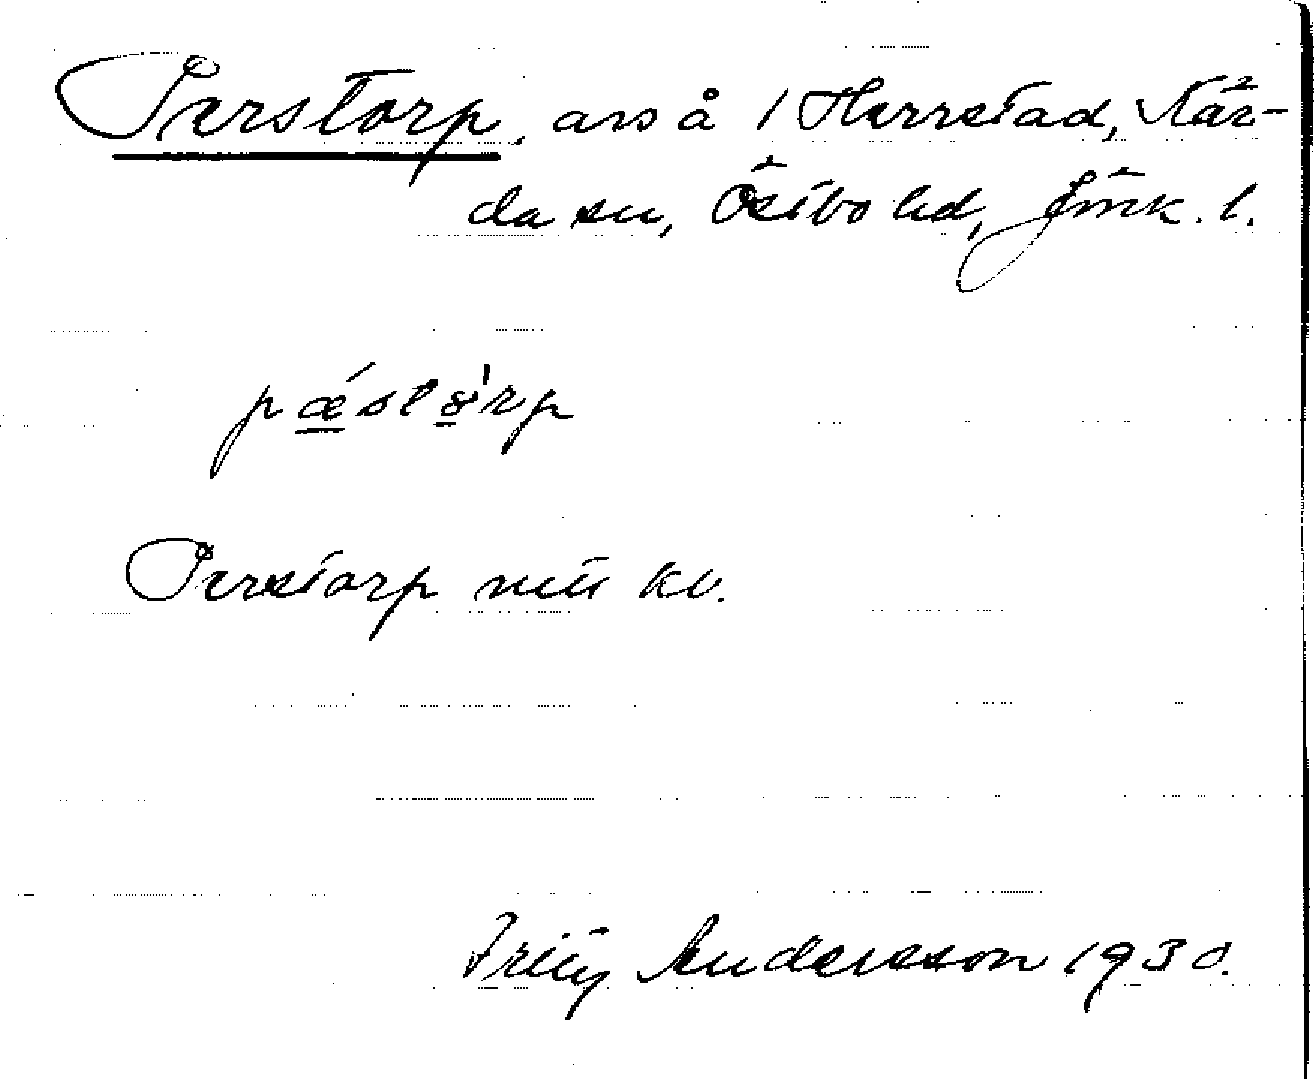 Perstorp, avs å 1 Herrestad, Kär-
da sn, Östbo hd, Jönk. l.
pǽstörp
Perstorp nått kv.
Fritz Andersson 1930.